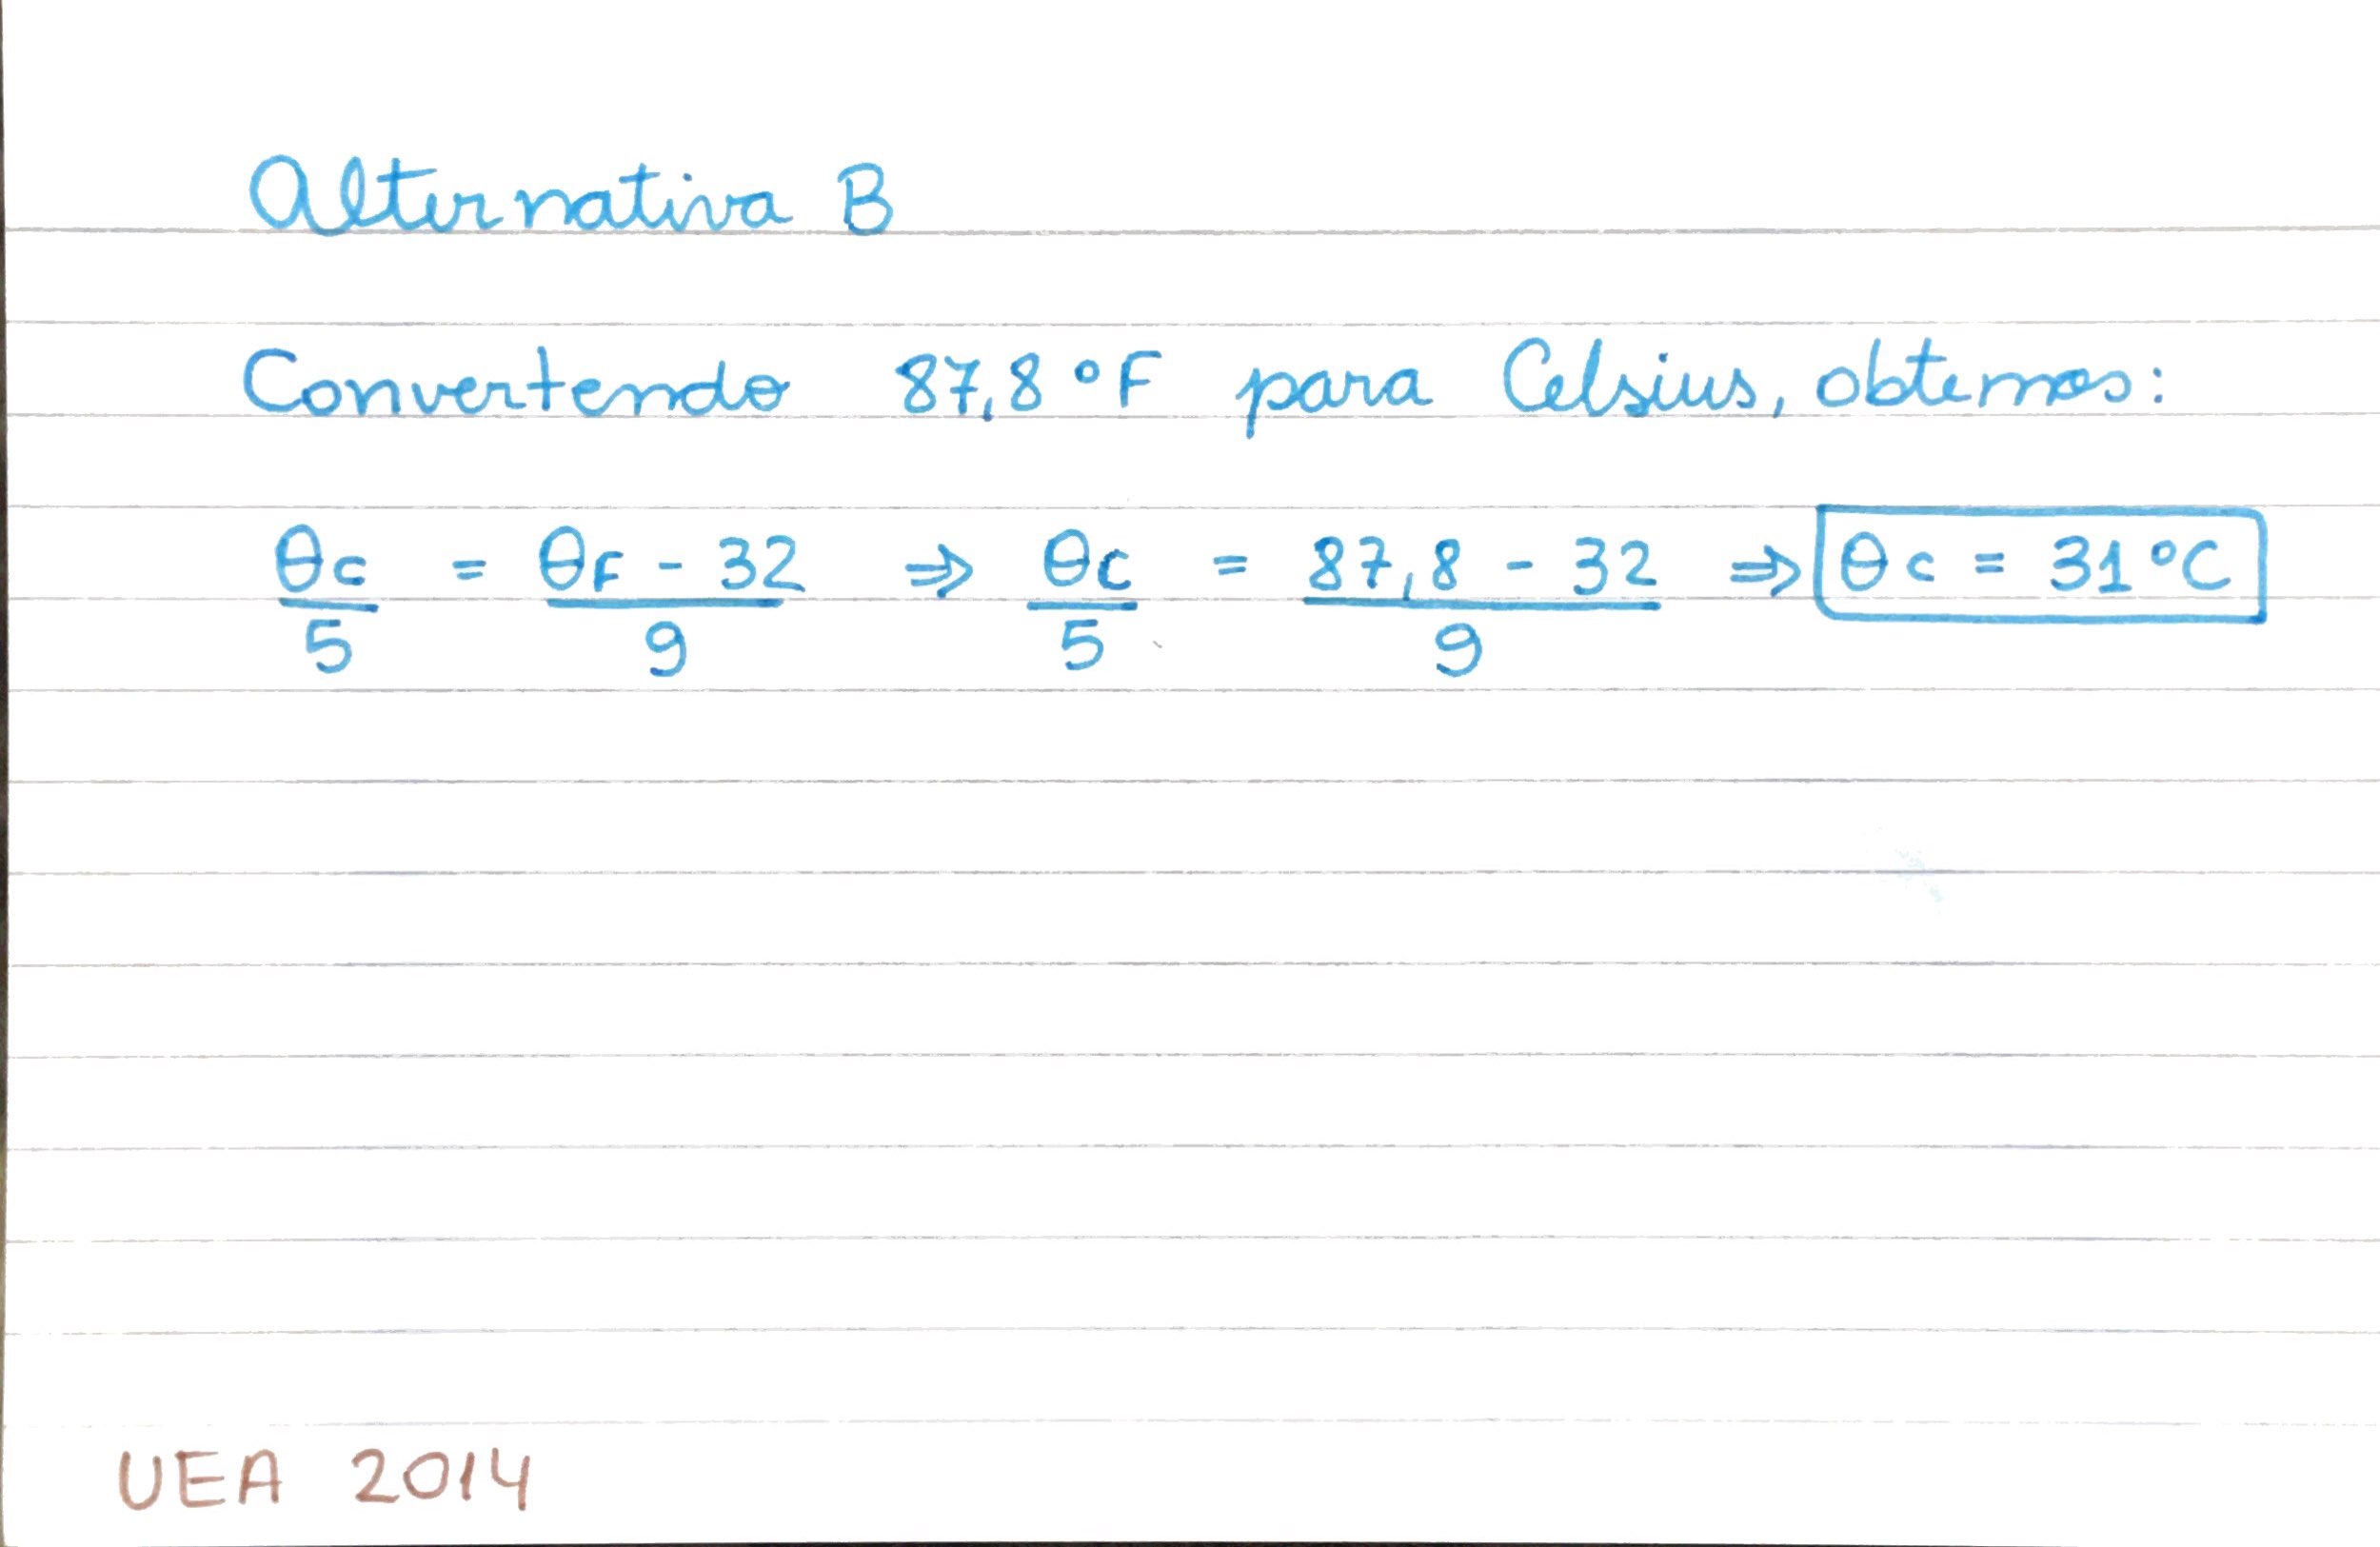 Alternativa B
Convertendo 87,8 °F para Celsius, obtemos:
θc/5 = θF - 32/9 ⇒ θc/5 = 87,8 - 32/9 ⇒ θc = 31 °C
UEA 2014